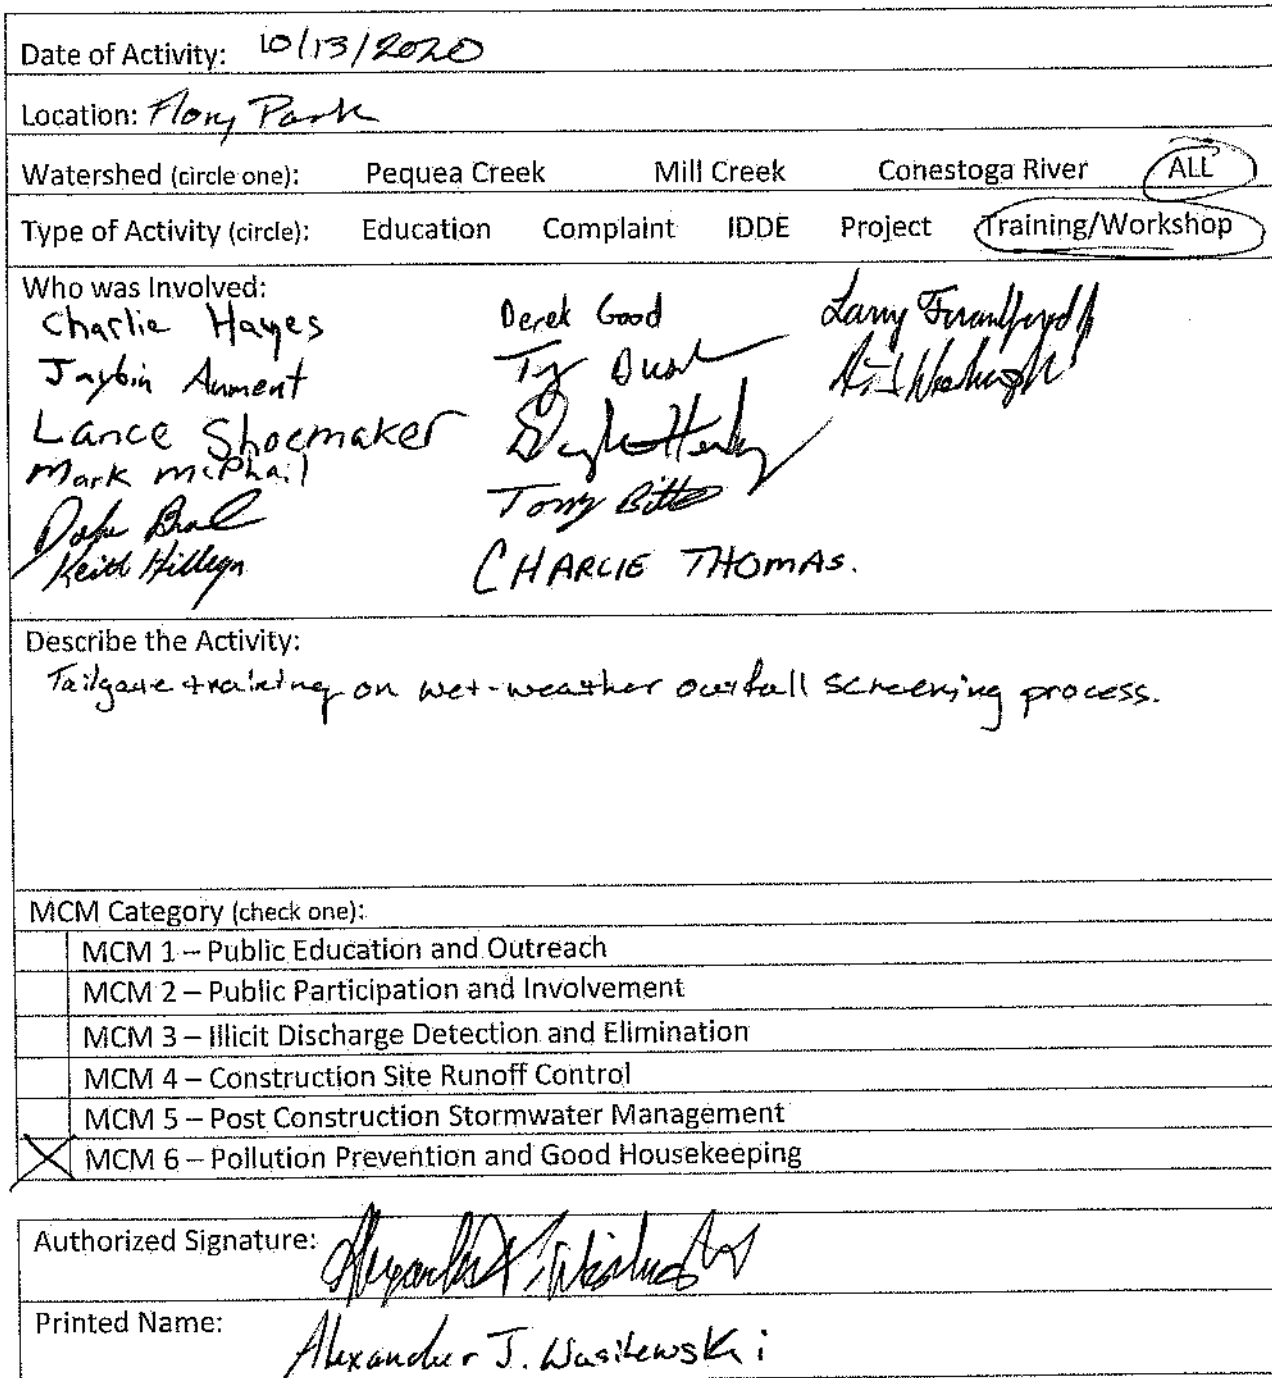 Date of Activity: 10/13/2020
Location: Flory Park
Watershed (circle one): Pequea Creek Mill Creek Conestoga River ALL
Type of Activity (circle): Education Complaint IDDE Project Training/Workshop
Who was Involved:
Charlie Hayes
Jaybin Aument
Lance Shoemaker
Mark McPhail
Keith
Derek Good
Ty
Tony
CHARLIE THOMAS.
Larry
Describe the Activity:
Tailgate training on wet-weather outfall screening process.
MCM Category (check one):
MCM 1 – Public Education and Outreach
MCM 2 – Public Participation and Involvement
MCM 3 – Illicit Discharge Detection and Elimination
MCM 4 – Construction Site Runoff Control
MCM 5 – Post Construction Stormwater Management
X MCM 6 – Pollution Prevention and Good Housekeeping
Authorized Signature:
Printed Name: Alexander J. Wasilewski